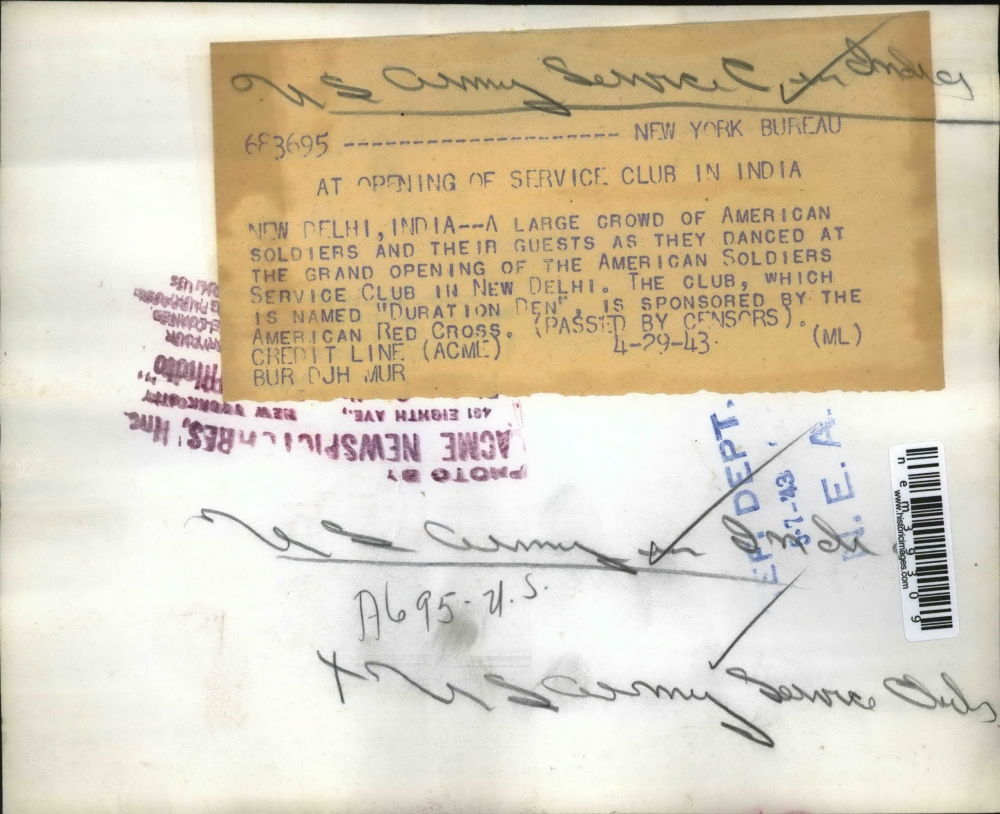 US Army Service C, in India
683695 -------------------- NEW YORK BUREAU
AT OPENING OF SERVICE CLUB IN INDIA
NEW DELHI, INDIA--A LARGE CROWD OF AMERICAN
SOLDIERS AND THEIR GUESTS AS THEY DANCED AT
THE GRAND OPENING OF THE AMERICAN SOLDIERS
SERVICE CLUB IN NEW DELHI. THE CLUB, WHICH
IS NAMED "DURATION DEN", IS SPONSORED BY THE
AMERICAN RED CROSS. (PASSED BY CENSORS).
CREDIT LINE (ACME) 4-29-43 (ML)
BUR DJH MUR
PHOTO BY
ACME NEWSPICTURES, Inc.
461 EIGHTH AVE.,
NEW YORK CITY
DEPT.
N. E. A.
US Army in India
A695-U.S.
+ US Army Service Clubs
n e m 3 9 3 0 9
www.historicimages.com